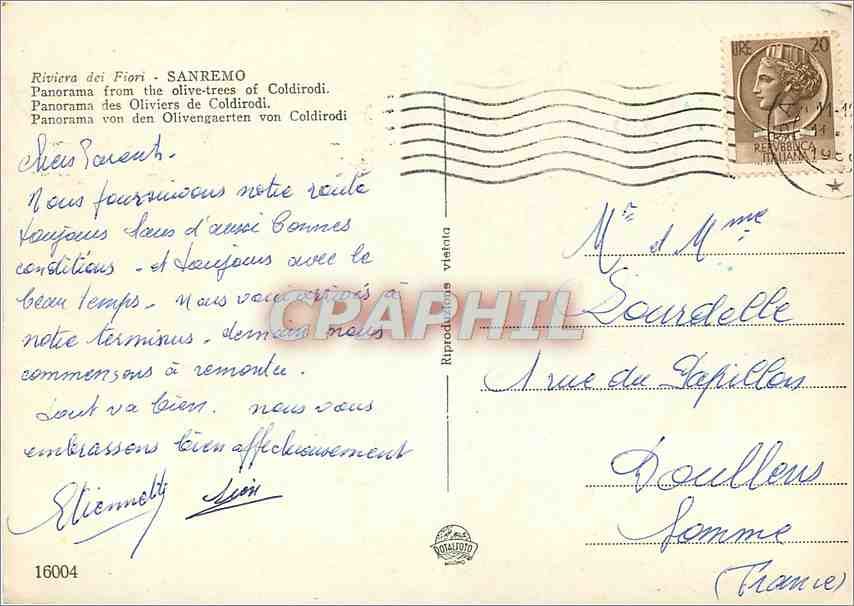 Riviera dei Fiori - SANREMO
Panorama from the olive-trees of Coldirodi.
Panorama des Oliviers de Coldirodi.
Panorama von den Olivengaerten von Coldirodi
Chers Parents.
Nous poursuivons notre route
toujours dans d'aussi bonnes
conditions - et toujours avec le
beau temps. Nous voici arrivés à
notre terminus. demain nous
commençons à remonter.
Tout va bien. nous vous
embrassons bien affectueusement
Etiennette
Riproduzione vietata
LIRE 20
REPVBBLICA
ITALIANA
CPAPHIL
Mr et Mme
Lourdelle
1 rue du Papillon
Doullens
Somme
(France)
ROTALFOTO
MILANO
16004